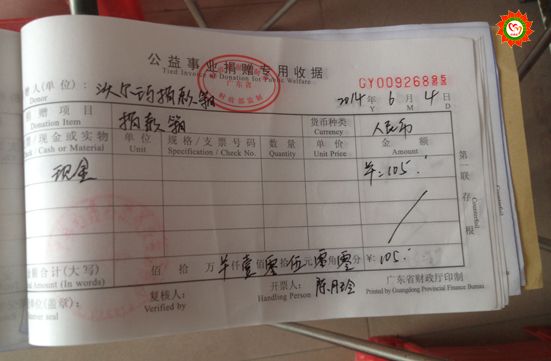 公益事业捐赠专用收据
Tied Invoice of Donation for Public Welfare
广东省
财政部监制
GY009268
赠人(单位): 沃尔玛捐款箱
Donor
2014 年 6 月 4 日
Y M D
捐赠项目 捐款箱 货币种类 人民币
Donation Item Currency
现金或实物 单位 规格/支票号码 数量 单价 金额
Cash or Material Unit Specification / Check No. Quantity Unit Price Amount
现金 ¥:105.
合计(大写) 佰 拾 万 ¥ 仟 壹 佰 零 拾 伍 元 零 角 零 分 ¥: 105.
Amount (In words)
单位(盖章): 复核人: 开票人:
seal Verified by Handling Person
广东省财政厅印制
Printed by Guangdong Provincial Finance Bureau
第一联 存根
Counterfoil
Counterfoil